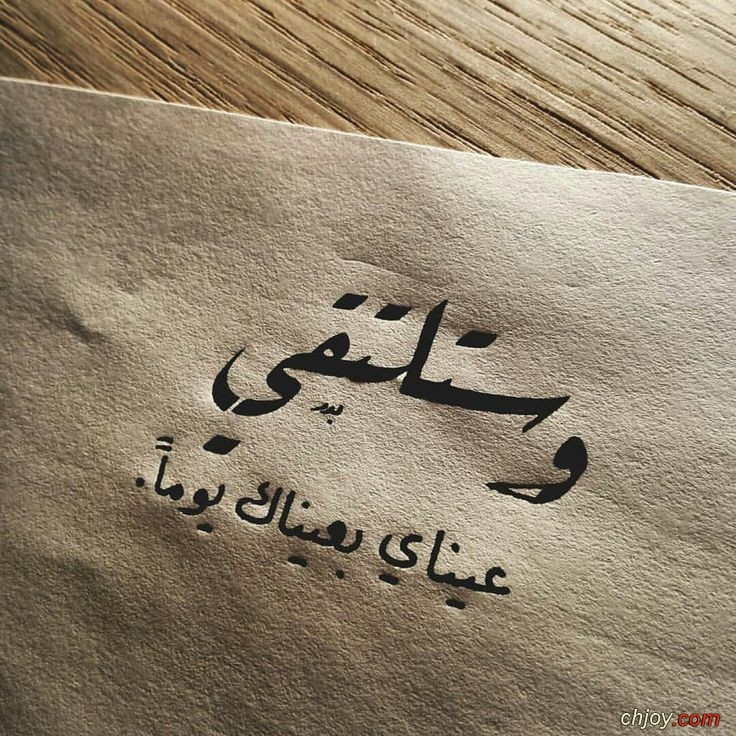 وستلتقي
بدر
عيناي بعيناك يوماً.
chjoy.com